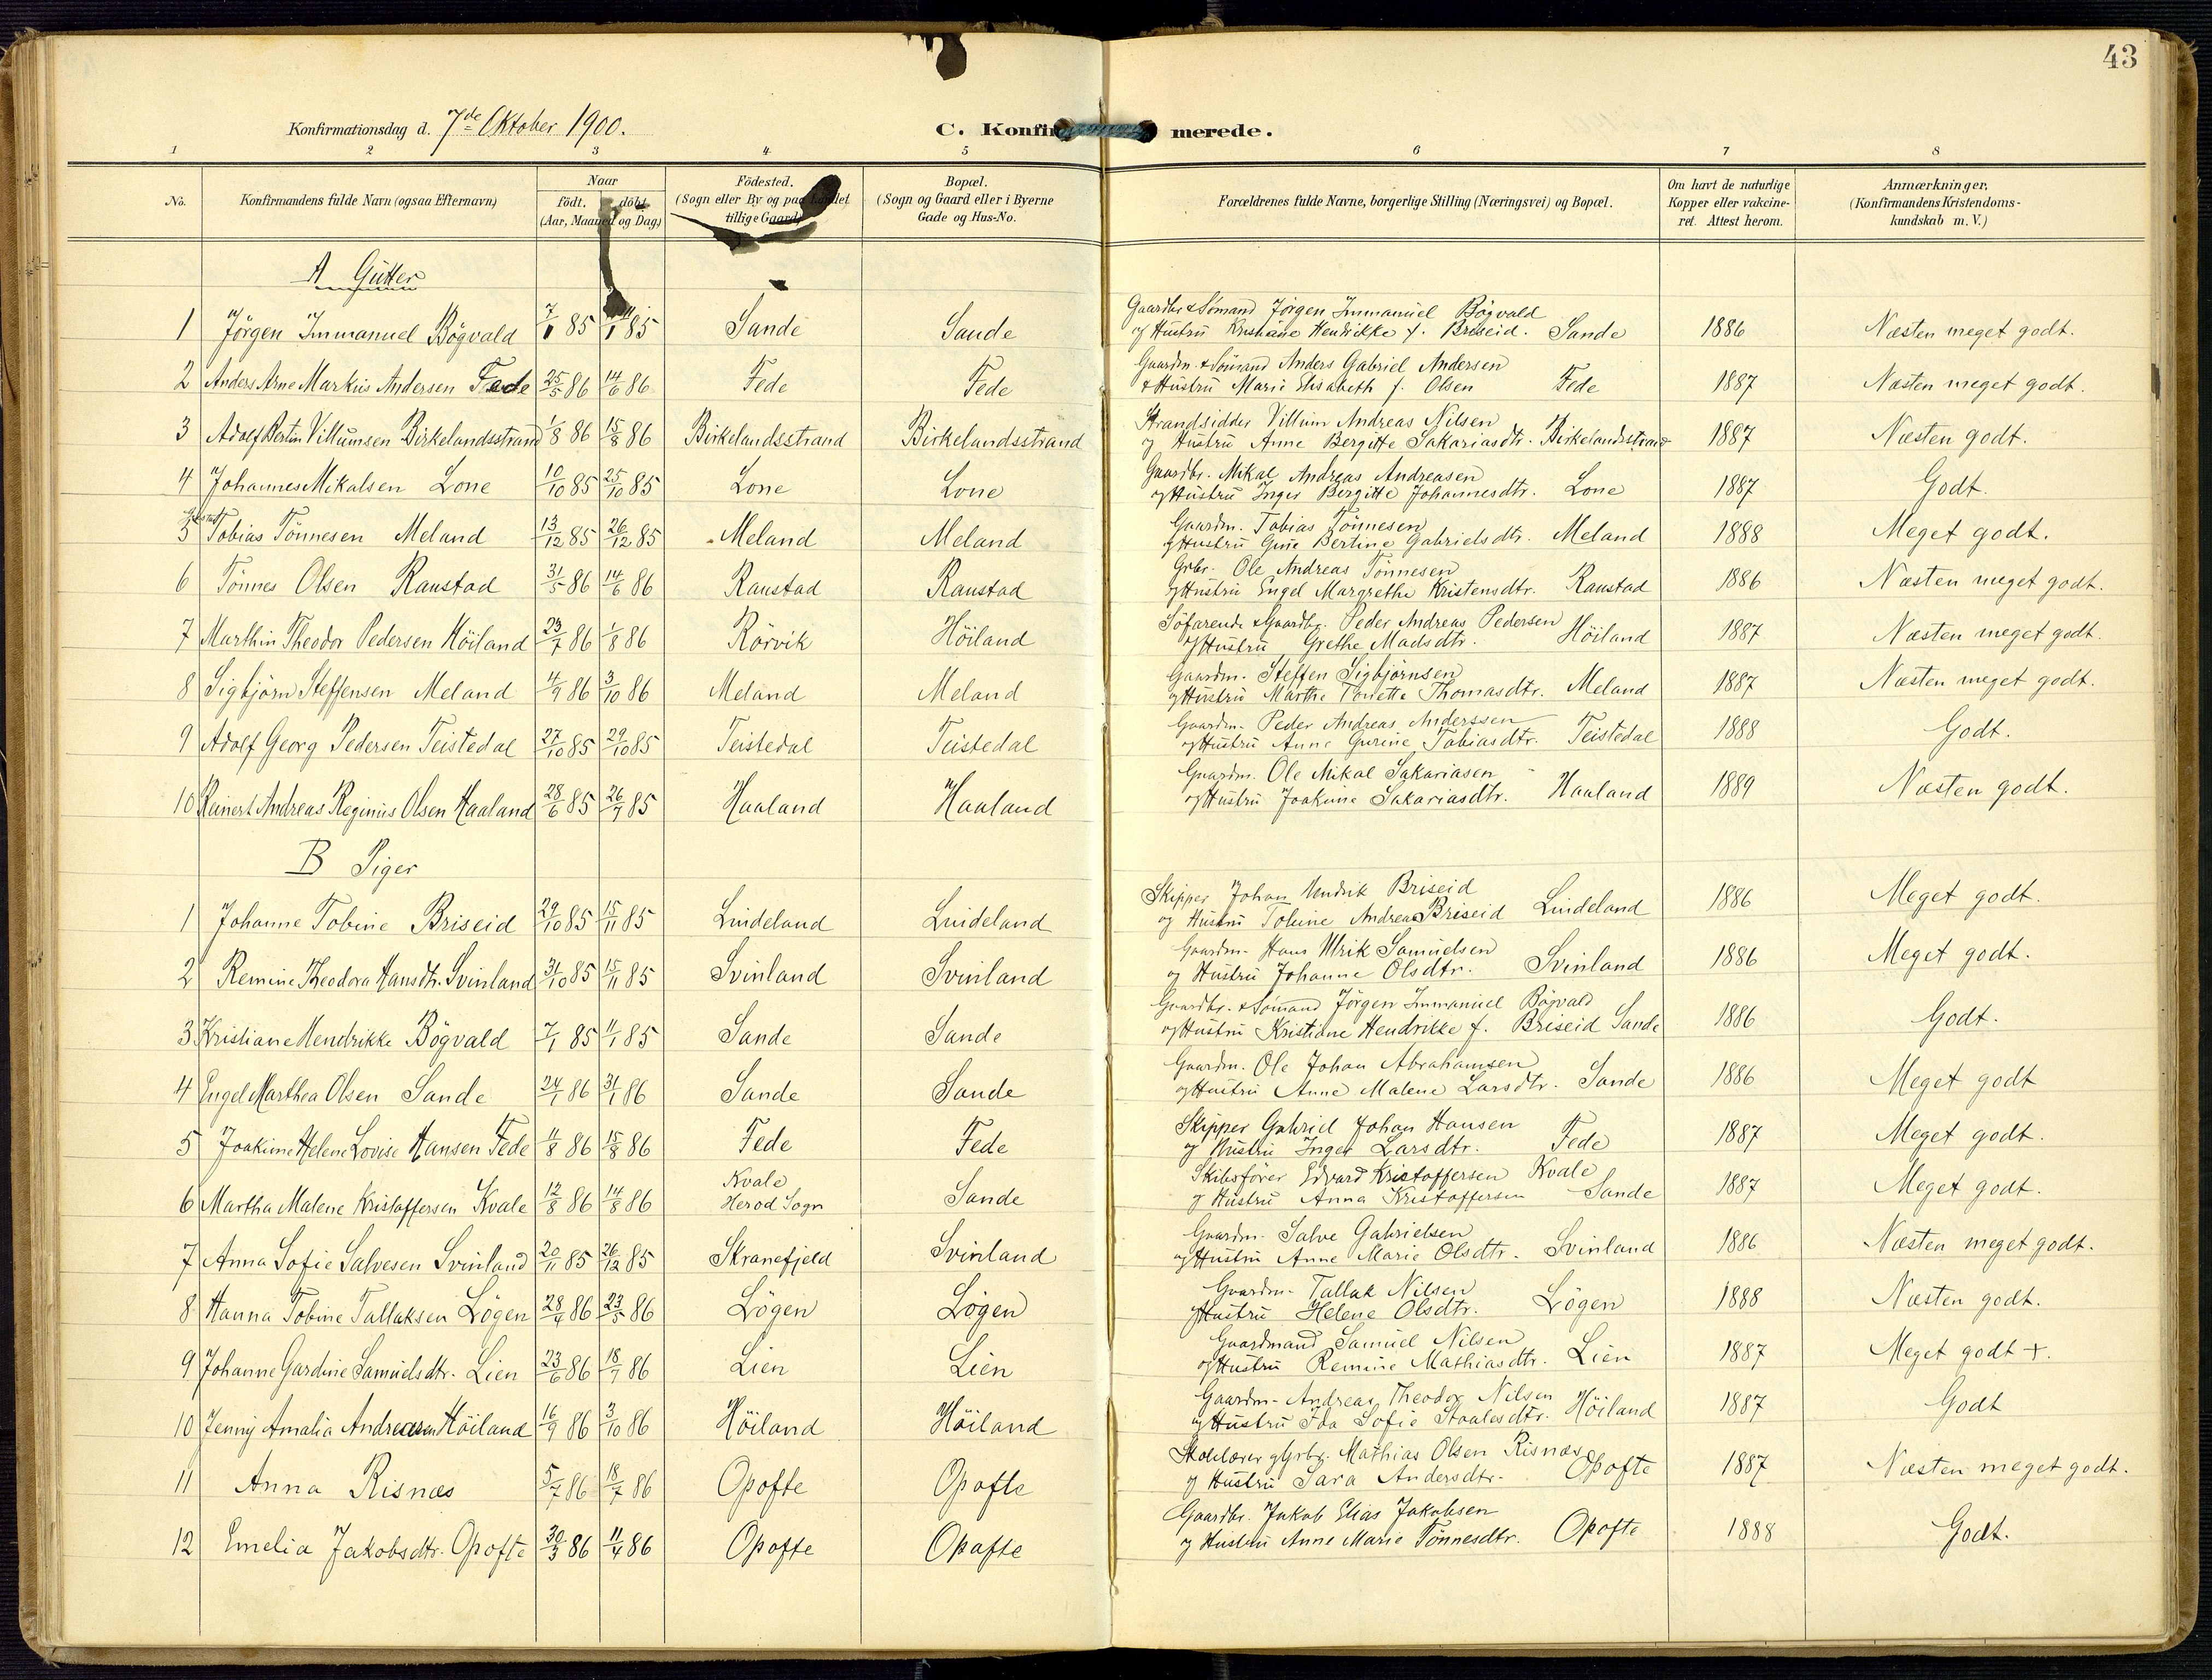 43
Konfirmationsdag d. 7de Oktober 1900.
C. Konfirmerede.
1 2 3 4 5 6 7 8
No. Konfirmandens fulde Navn (ogsaa Efternavn) Naar födt. döbt. (Aar, Maaned og Dag) Födested. (Sogn eller By og paa Landet tillige Gaard) Bopæl. (Sogn og Gaard eller i Byerne Gade og Hus-No. Forældrenes fulde Navne, borgerlige Stilling (Næringsvei) og Bopæl. Om havt de naturlige Kopper eller vakcineret. Attest herom. Anmærkninger. (Konfirmandens Kristendomskundskab m. V.)
A Gutter
1 Jörgen Immanuel Bögvald 7/1 85 11/1 85 Sande Sande Gaardbr. & Sömand Jörgen Immanuel Bögvald og Hustru Kristiane Hendrikke f. Briseid. Sande 1886 Næsten meget godt.
2 Anders Arne Markus Andersen Fede 25/5 86 14/6 86 Fede Fede Gaardm. & Sömand Anders Gabriel Andersen & Hustru Marie Elisabeth f. Olsen Fede 1887 Næsten meget godt.
3 Adolf Bertin Villumsen Birkelandsstrand 1/8 86 15/8 86 Birkelandsstrand Birkelandsstrand Strandsidder Villum Andreas Nilsen og Hustru Anne Bergitte Sakariasdtr. Birkelandsstrand 1887 Næsten godt.
4 Johannes Mikalsen Lone 10/10 85 25/10 85 Lone Lone Gaardbr. Mikal Andreas Andreasen og Hustru Inger Bergitte Johannesdtr. Lone 1887 Godt.
5 Tobias Tönnesen Meland 13/12 85 26/12 85 Meland Meland Gaardm. Tobias Tönnesen og Hustru Gine Bertine Gabrielsdtr. Meland 1888 Meget godt.
6 Tönnes Olsen Raustad 31/5 86 14/6 86 Raustad Raustad Grbr. Ole Andreas Tönnesen og Hustru Engel Margrethe Kristensdtr. Raustad 1886 Næsten meget godt.
7 Marthin Theodor Pedersen Höiland 23/7 86 1/8 86 Rörvik Höiland Söfarende & Gaardbr. Peder Andreas Pedersen og Hustru Grethe Madsdtr. Höiland 1887 Næsten meget godt.
8 Sigbjörn Steffensen Meland 4/9 86 3/10 86 Meland Meland Gaardm. Steffen Sigbjörnsen og Hustru Marthe Tonette Thomasdtr. Meland 1887 Næsten meget godt.
9 Adolf Georg Pedersen Teistedal 27/10 85 29/10 85 Teistedal Teistedal Gaardm. Peder Andreas Anderssen og Hustru Anne Gurine Tobiasdtr. Teistedal 1888 Godt.
10 Reinert Andreas Reginius Olsen Haaland 28/6 85 26/7 85 Haaland Haaland Gaardm. Ole Mikal Sakariasen og Hustru Joakime Sakariasdtr. Haaland 1889 Næsten godt.
B Piger
1 Johanne Tobine Briseid 29/10 85 15/11 85 Lindeland Lindeland Skipper Johan Hendrik Briseid og Hustru Tobine Andrea Briseid Lindeland 1886 Meget godt.
2 Remine Theodora Hansdtr. Svinland 31/10 85 15/11 85 Svinland Svinland Gaardm. Hans Ulrik Samuelsen og Hustru Johanne Olsdtr. Svinland 1886 Meget godt.
3 Kristiane Hendrikke Bögvald 7/1 85 11/1 85 Sande Sande Gaardbr. & Sömand Jörgen Immanuel Bögvald og Hustru Kristiane Hendrikke f. Briseid Sande 1886 Godt.
4 Engel Marthea Olsen Sande 24/1 86 31/1 86 Sande Sande Gaardm. Ole Johan Abrahamsen og Hustru Anne Malene Larsdtr. Sande 1886 Meget godt
5 Joakime Helene Lovise Hansen Fede 11/8 86 15/8 86 Fede Fede Skipper Gabriel Johan Hansen og Hustru Inger Larsdtr. Fede 1887 Meget godt.
6 Martha Malene Kristoffersen Kvale 12/8 86 14/8 86 Kvale Herod Sogn Sande Skibsförer Edvard Kristoffersen Kvale og Hustru Anna Kristoffersen Sande 1887 Meget godt.
7 Anna Sofie Salvesen Svinland 20/11 85 26/12 85 Skranefjeld Svinland Gaardm. Salve Gabrielsen og Hustru Anne Marie Olsdtr. Svinland 1886 Næsten meget godt.
8 Hanna Tobine Tallaksen Lögen 28/4 86 23/5 86 Lögen Lögen Gaardm. Tallak Nilsen og Hustru Helene Olsdtr. Lögen 1888 Næsten godt.
9 Johanne Gardine Samuelsdtr. Lien 23/6 86 18/7 86 Lien Lien Gaardmand Samuel Nilsen og Hustru Remine Mathiasdtr. Lien 1887 Meget godt +.
10 Jenny Amalia Andreasen Höiland 16/9 86 3/10 86 Höiland Höiland Gaardm. Andreas Theodor Nilsen og Hustru Ida Sofie Staalesdtr. Höiland 1887 Godt
11 Anna Risnæs 5/7 86 18/7 86 Opofte Opofte Skolelærer og Grbr. Mathias Olsen Risnæs og Hustru Sara Andersdtr. Opofte 1887 Næsten meget godt.
12 Emelia Jakobsdtr. Opofte 30/3 86 11/4 86 Opofte Opofte Gaardbr. Jakob Elias Jakobsen og Hustru Anne Marie Tönnesdtr. Opofte 1888 Godt.